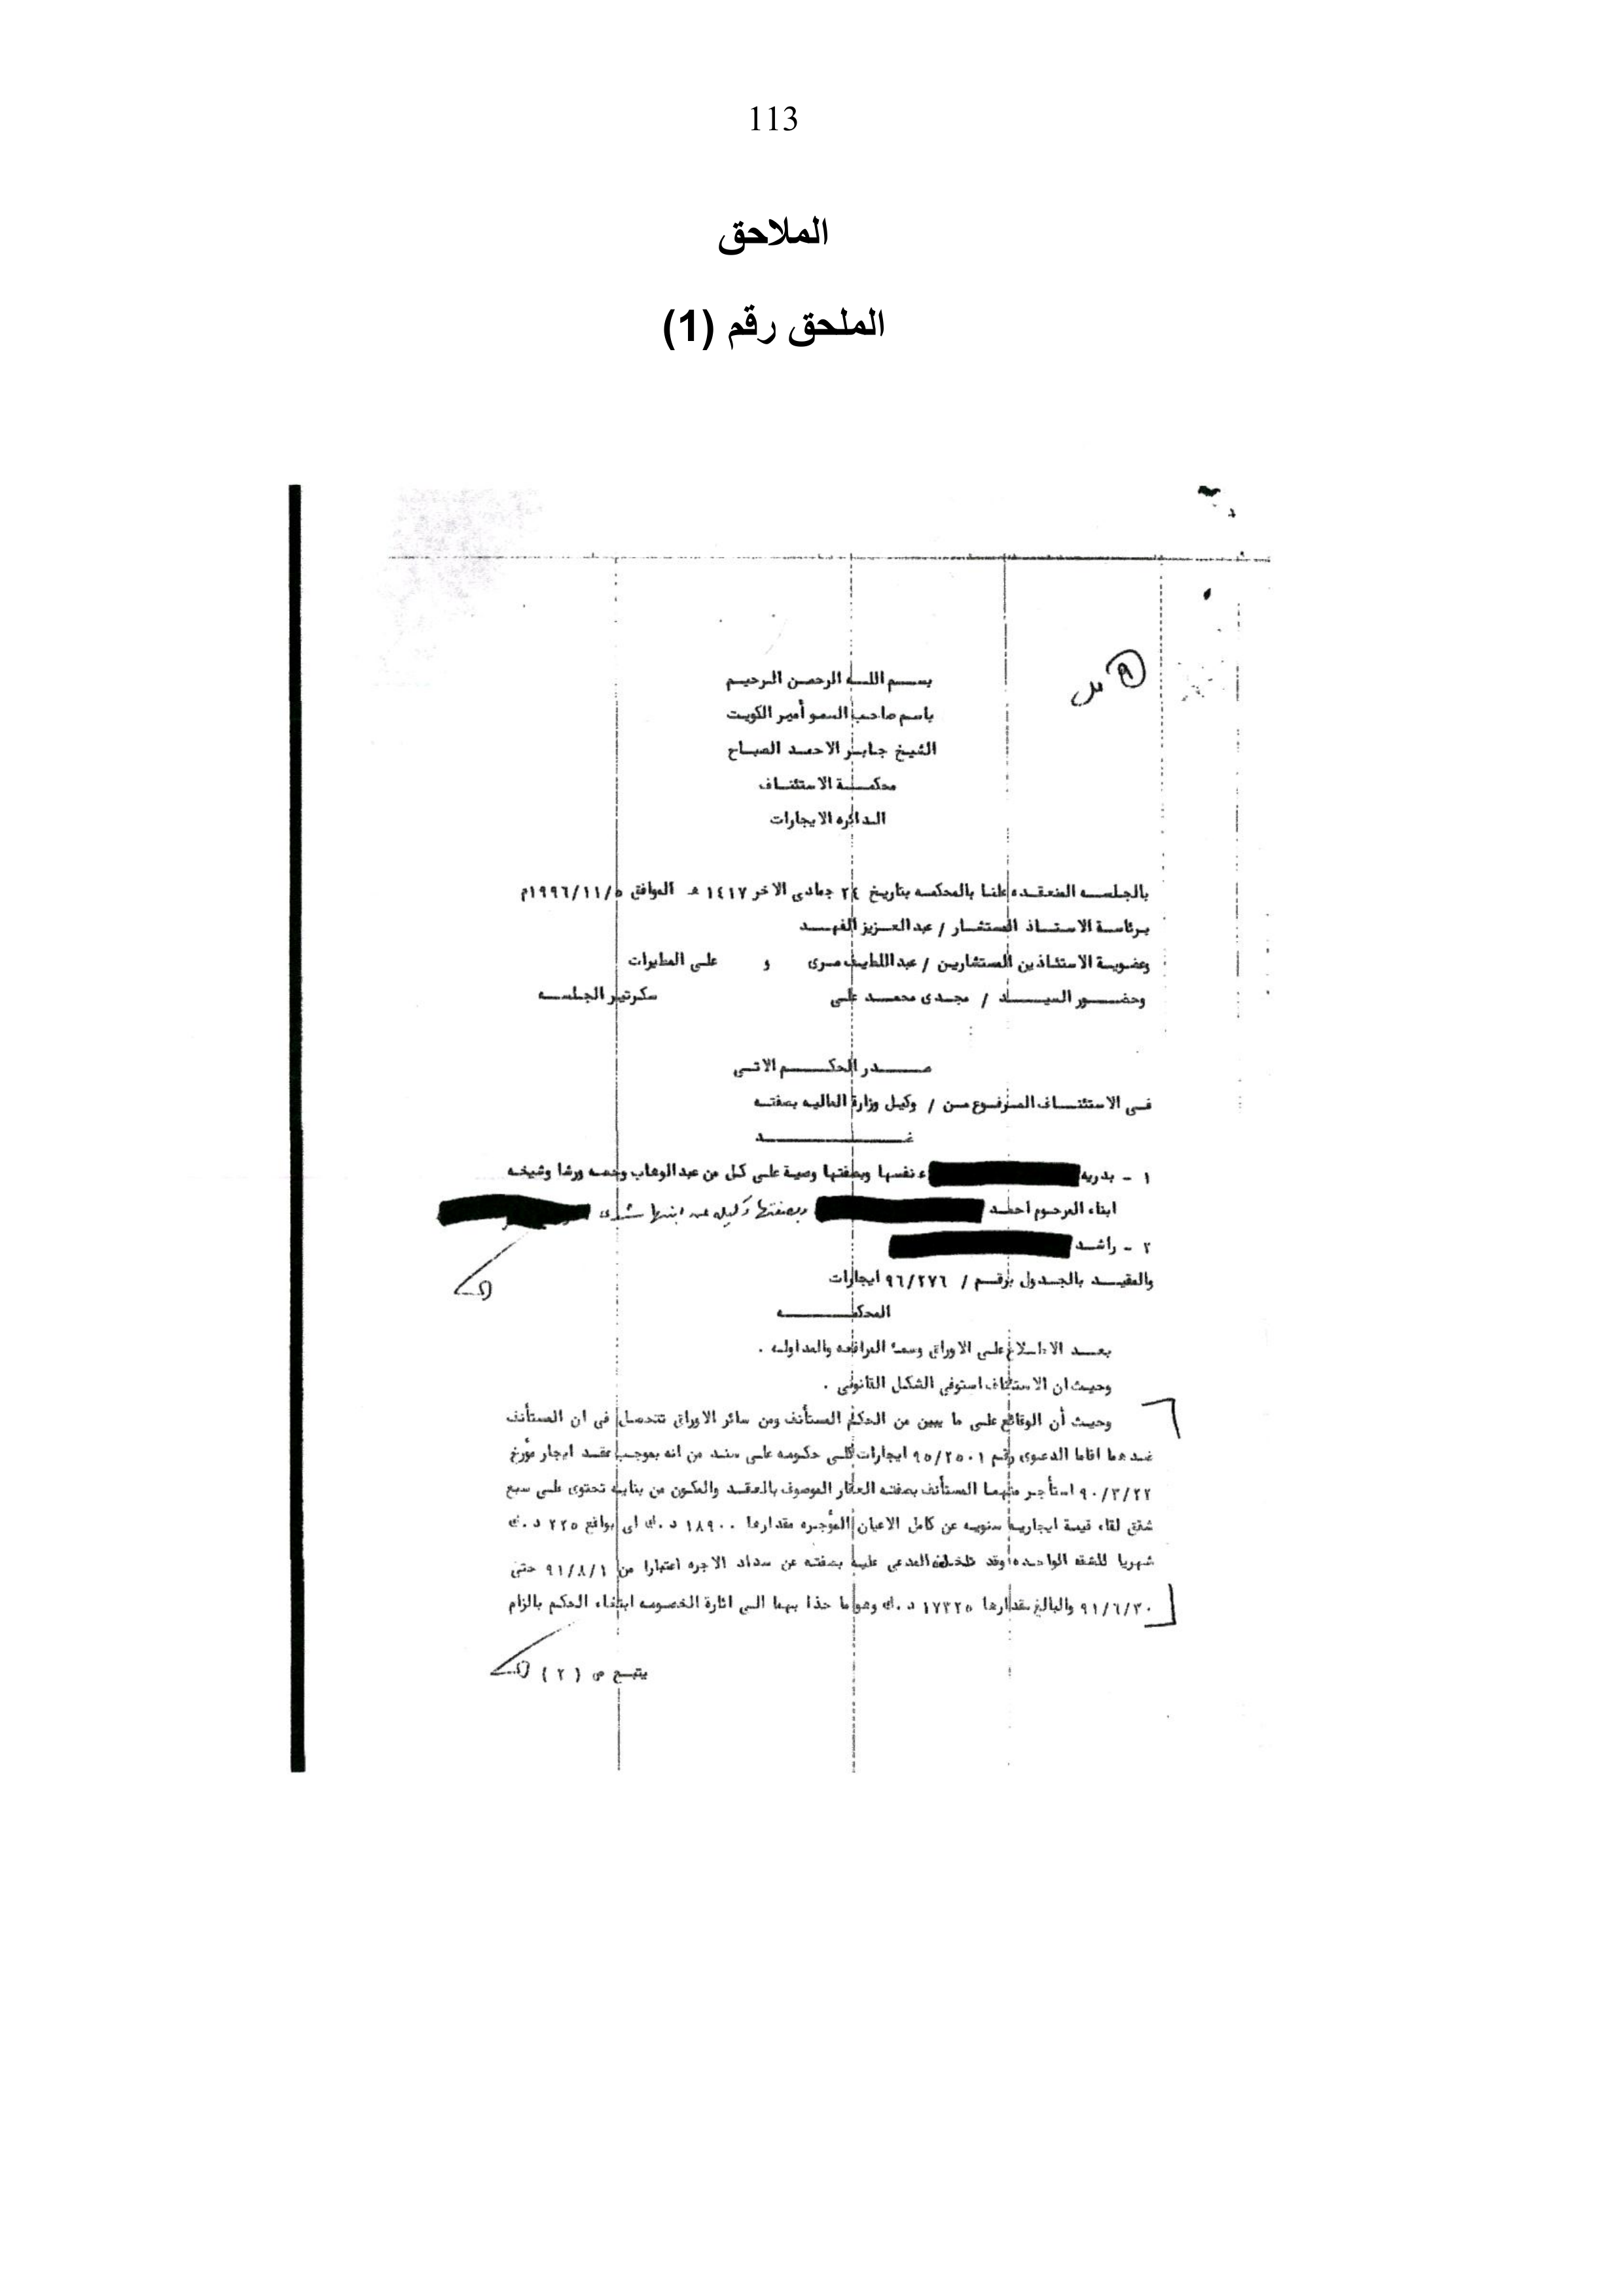 113
الملاحق
الملحق رقم (1)
بسم اللـه الرحمن الرحيم
باسم صاحب السمو أمير الكويت
الشيخ جابر الاحمد الصباح
محكمة الاستئناف
الدائره الايجارات
بالجلسه المنعقده علنا بالمحكمه بتاريخ ٢٤ جمادى الاخر ١٤١٧ هـ الموافق ١٩٩٦/١١/٥م
برئاسة الاستاذ المستشار / عبدالعزيز الفهد
وعضوية الاستئاذين المستشارين / عبداللطيف سرى و على المطيرات
وحضور السيد / مجدى محمد على سكرتير الجلسه
صدر الحكم الاتى
فى الاستئناف المرفوع من / وكيل وزارة الماليه بصفته
ضد
١ - بدريه نفسها وبصفتها وصية على كل من عبدالوهاب وحصه ورشا وشيخه
ابناء المرحوم احمد وبصفتها وكيله عن ابنها
٢ - راشد
والمقيد بالجدول برقم / ٩٦/٢٧٦ ايجارات
المحكمه
بعد الاطلاع على الاوراق وسمع المرافعه والمداوله .
وحيث ان الاستئناف استوفى الشكل القانونى .
وحيث أن الوقائع على ما يبين من الحكم المستأنف ومن سائر الاوراق تتحصل فى ان المستأنف
ضدهما اقاما الدعوى رقم ٩٥/٢٥٠١ ايجارات كلى حكومه على سند من انه بموجب عقد ايجار مؤرخ
٩٠/٣/٢٢ استأجر منهما المستأنف بصفته العقار الموصوف بالعقد والمكون من بنايه تحتوى على سبع
شقق لقاء قيمة ايجاريه سنويه عن كامل الاعيان المؤجره مقدارها ١٨٩٠٠ د.ك اى بواقع ٢٢٥ د.ك
شهريا للشقه الواحده وقد تخلف المدعى عليه بصفته عن سداد الاجره اعتبارا من ٩١/٨/١ حتى
٩١/٦/٣٠ والبالغ مقدارها ١٧٣٢٥ د.ك وهو ما حذا بهما الى اثارة الخصومه ابتغاء الحكم بالزام
يتبع ص (٢)